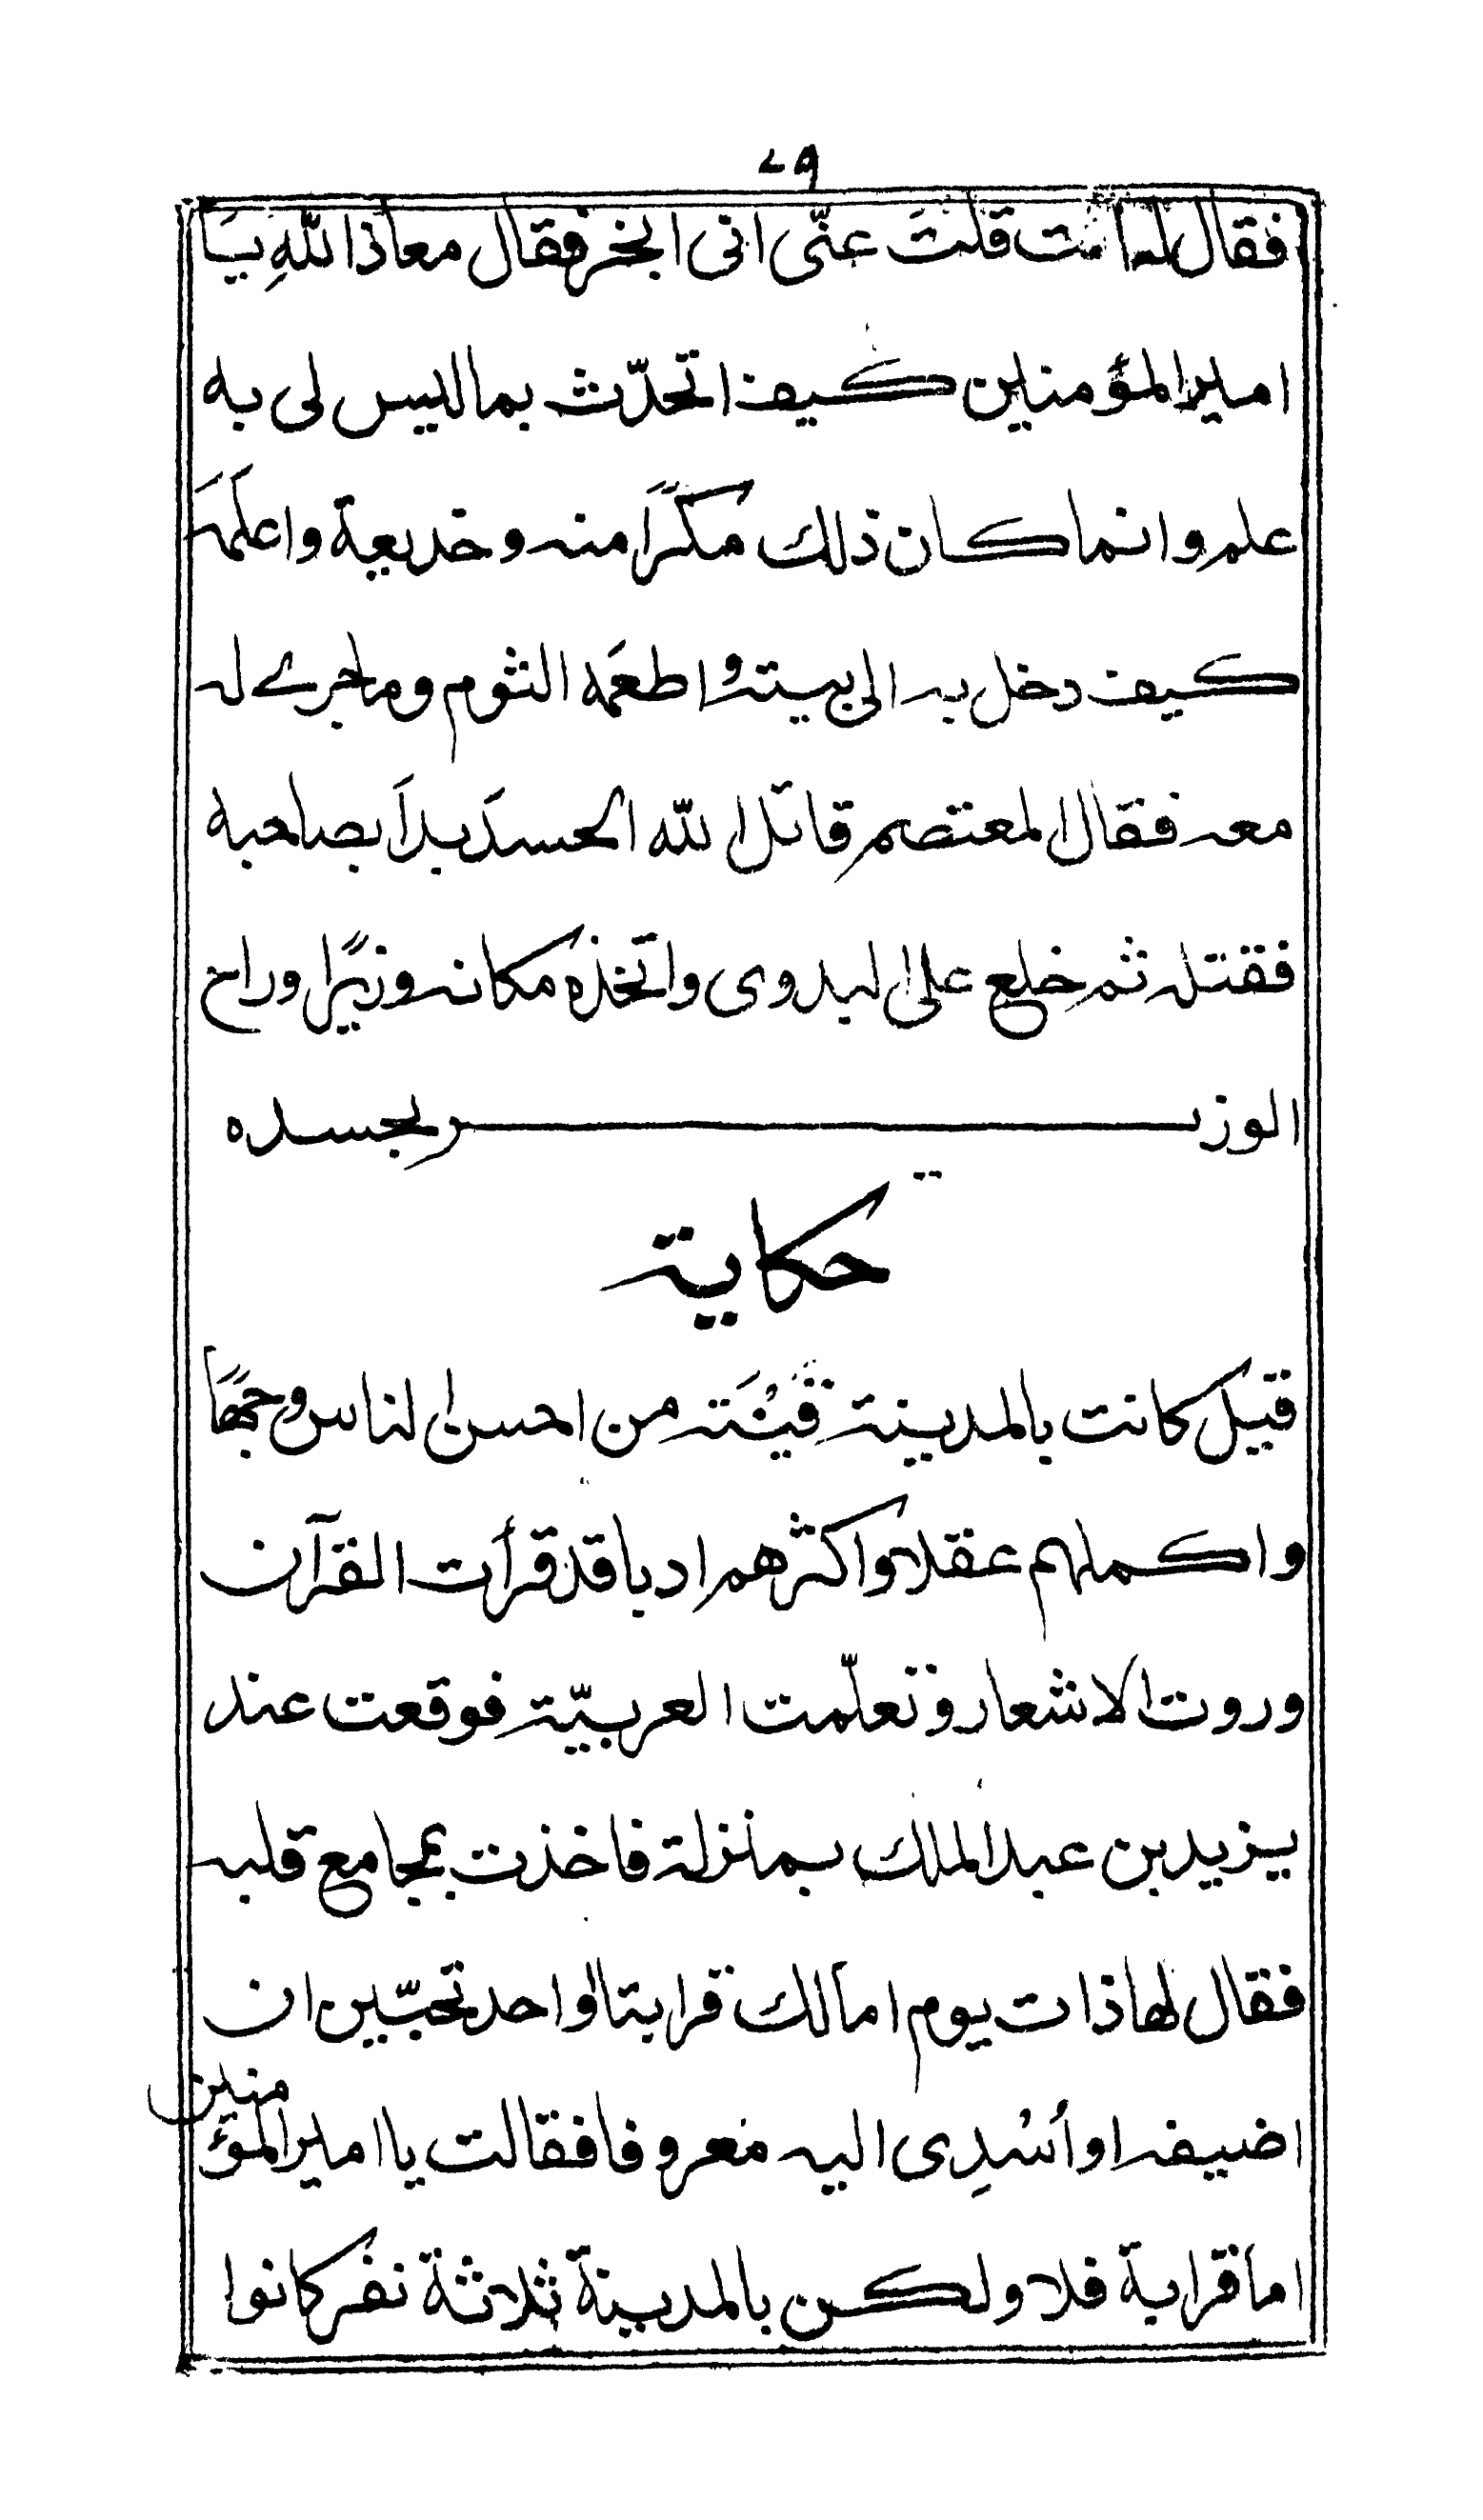 ٢٩
فقال له انت قلت عنّى انى ابخر فقال معاذ اللهِ يَا
امير المؤمنين كيف اتحدّث بما ليس لى به
علم وانما كان ذلك مَكرًا منه وخديعة واعلَمَه
كيف دخل به الى بيته واطعَمه الثوم وما جرے له
معه فقال المعتصم قاتَل الله الحسدَ بدأ بصاحبه
فقتله ثم خلع على البدوى واتخذه مكانه وزيرًا وراح
الوزير بحسده
حكاية
قيل كانت بالمدينة قَيْنَة من احسن الناس وجهًا
واكملهم عقلا واكثرهم ادبا قد قرأت القرآن
وروت الاشعار وتعلّمت العربيّة فوقعت عند
يزيد بن عبد الملك بمنزلة فاخذت بمجامع قلبه
فقال لها ذات يوم اما لك قرابتا واحد تحبّين ان
اضيفه او أسْدِى اليه معروفا فقالت يا امير المؤمنين
اما قرابة فلا ولكن بالمدينة ثلاثة نفر كانوا